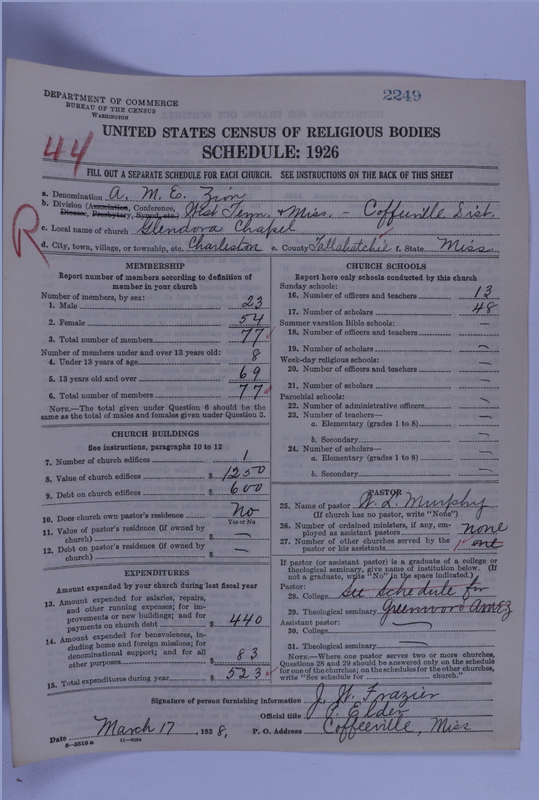 2249
DEPARTMENT OF COMMERCE
BUREAU OF THE CENSUS
WASHINGTON
44
UNITED STATES CENSUS OF RELIGIOUS BODIES
SCHEDULE: 1926
FILL OUT A SEPARATE SCHEDULE FOR EACH CHURCH. SEE INSTRUCTIONS ON THE BACK OF THIS SHEET
R
a. Denomination A. M. E. Zion
b. Division (Association, Conference, Diocese, Presbytery, Synod, etc.) West Tenn. & Miss. - Coffeeville Dist.
c. Local name of church Glendora Chapel
d. City, town, village, or township, etc. Charleston e. County Tallahatchie f. State Miss.
MEMBERSHIP
Report number of members according to definition of member in your church
Number of members, by sex:
1. Male 23
2. Female 54
3. Total number of members 77
Number of members under and over 13 years old:
4. Under 13 years of age 8
5. 13 years old and over 69
6. Total number of members 77
NOTE.—The total given under Question 6 should be the same as the total of males and females given under Question 3.
CHURCH BUILDINGS
See instructions, paragraphs 10 to 12
7. Number of church edifices 1
8. Value of church edifices $ 1250
9. Debt on church edifices $ 600
10. Does church own pastor's residence? No
Yes or No
11. Value of pastor's residence (if owned by church) $ —
12. Debt on pastor's residence (if owned by church) $ —
EXPENDITURES
Amount expended by your church during last fiscal year
13. Amount expended for salaries, repairs, and other running expenses; for improvements or new buildings; and for payments on church debt $ 440
14. Amount expended for benevolences, including home and foreign missions; for denominational support; and for all other purposes $ 83
15. Total expenditures during year $ 523
CHURCH SCHOOLS
Report here only schools conducted by this church
Sunday schools:
16. Number of officers and teachers 13
17. Number of scholars 48
Summer vacation Bible schools:
18. Number of officers and teachers —
19. Number of scholars —
Week-day religious schools:
20. Number of officers and teachers —
21. Number of scholars —
Parochial schools:
22. Number of administrative officers —
23. Number of teachers—
a. Elementary (grades 1 to 8) —
b. Secondary —
24. Number of scholars—
a. Elementary (grades 1 to 8) —
b. Secondary —
PASTOR
25. Name of pastor W. L. Murphy
(If church has no pastor, write "None")
26. Number of ordained ministers, if any, employed as assistant pastors none
27. Number of other churches served by the pastor or his assistants 1 one
If pastor (or assistant pastor) is a graduate of a college or theological seminary, give name of institution below. (If not a graduate, write "No" in the space indicated.)
Pastor:
28. College See schedule for
29. Theological seminary Greenwood AMEZ
Assistant pastor:
30. College —
31. Theological seminary —
NOTE.—Where one pastor serves two or more churches, Questions 28 and 29 should be answered only on the schedule for one of the churches; on the schedules for the other churches, write "See schedule for church."
Signature of person furnishing information J. W. Frazier
Official title P. Elder
Date March 17, 1928, P. O. Address Coffeeville, Miss
8-5518a 11-9184